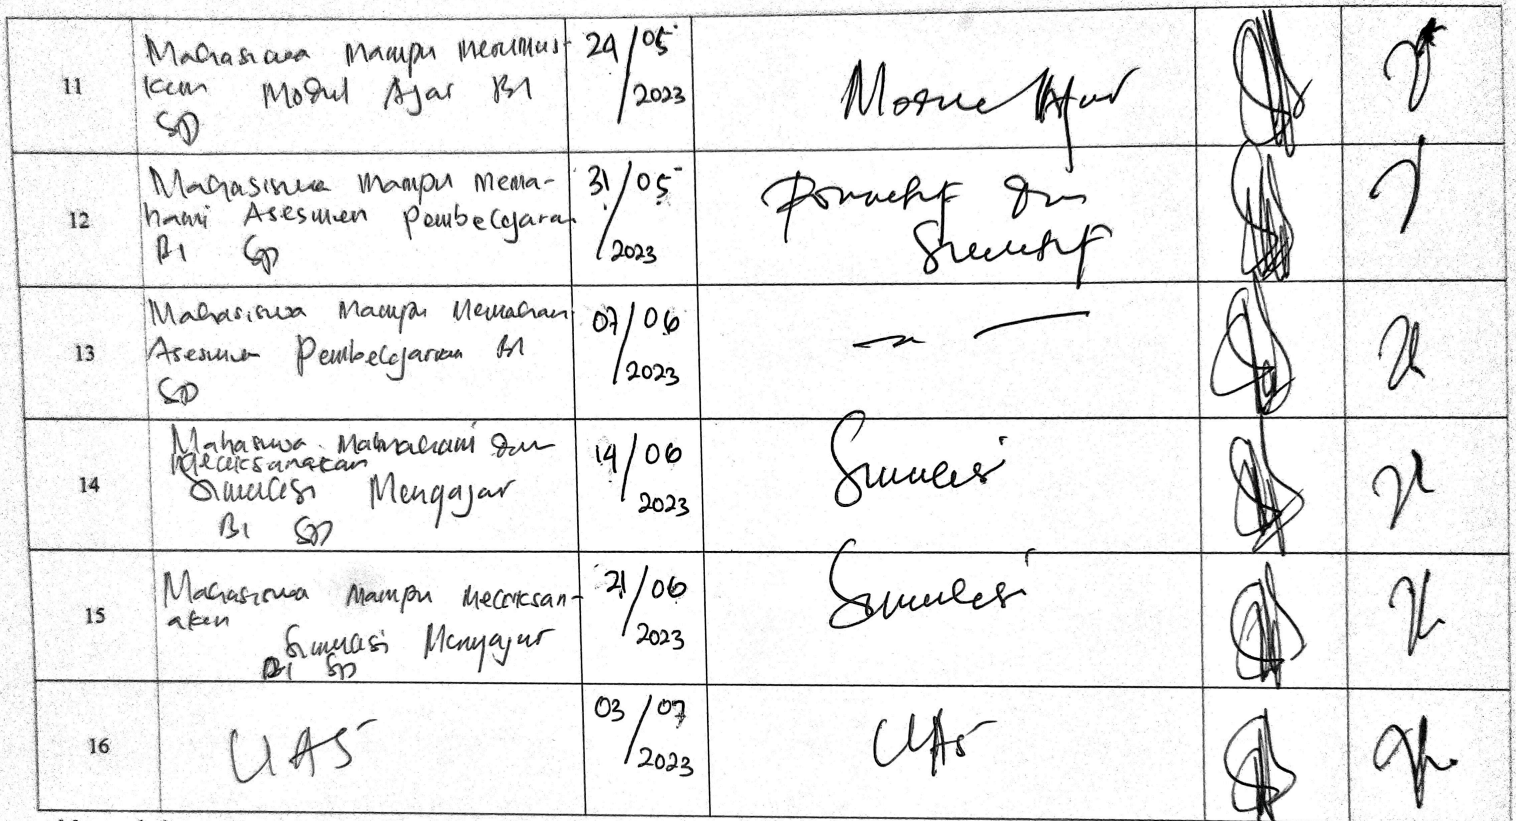 11
Mahasiswa Mampu Merumus-
kan Modul Ajar BI
SD
24/05
2023
Modul Ajar
12
Mahasiswa Mampu Mema-
hami Asesmen Pembelajaran
BI SD
31/05
2023
Formatif dan
Sumatif
13
Mahasiswa Mampu Memahami
Asesmen Pembelajaran BI
SD
07/06
2023
14
Mahasiswa Memahami dan
Melaksanakan
Simulasi Mengajar
BI SD
14/06
2023
Simulasi
15
Mahasiswa Mampu Melaksan-
akan
Simulasi Mengajar
BI SD
21/06
2023
Simulasi
16
UAS
03/07
2023
UAS